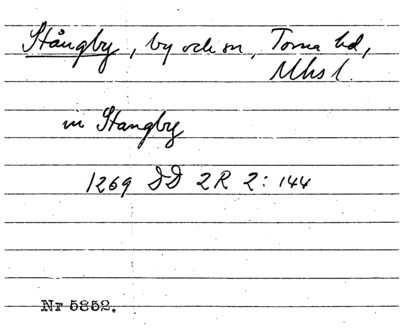 Stångby, by och sn, Torna hd,
Mhs l.
in Stangby
1269 DD 2R 2: 144
Nr 5852.